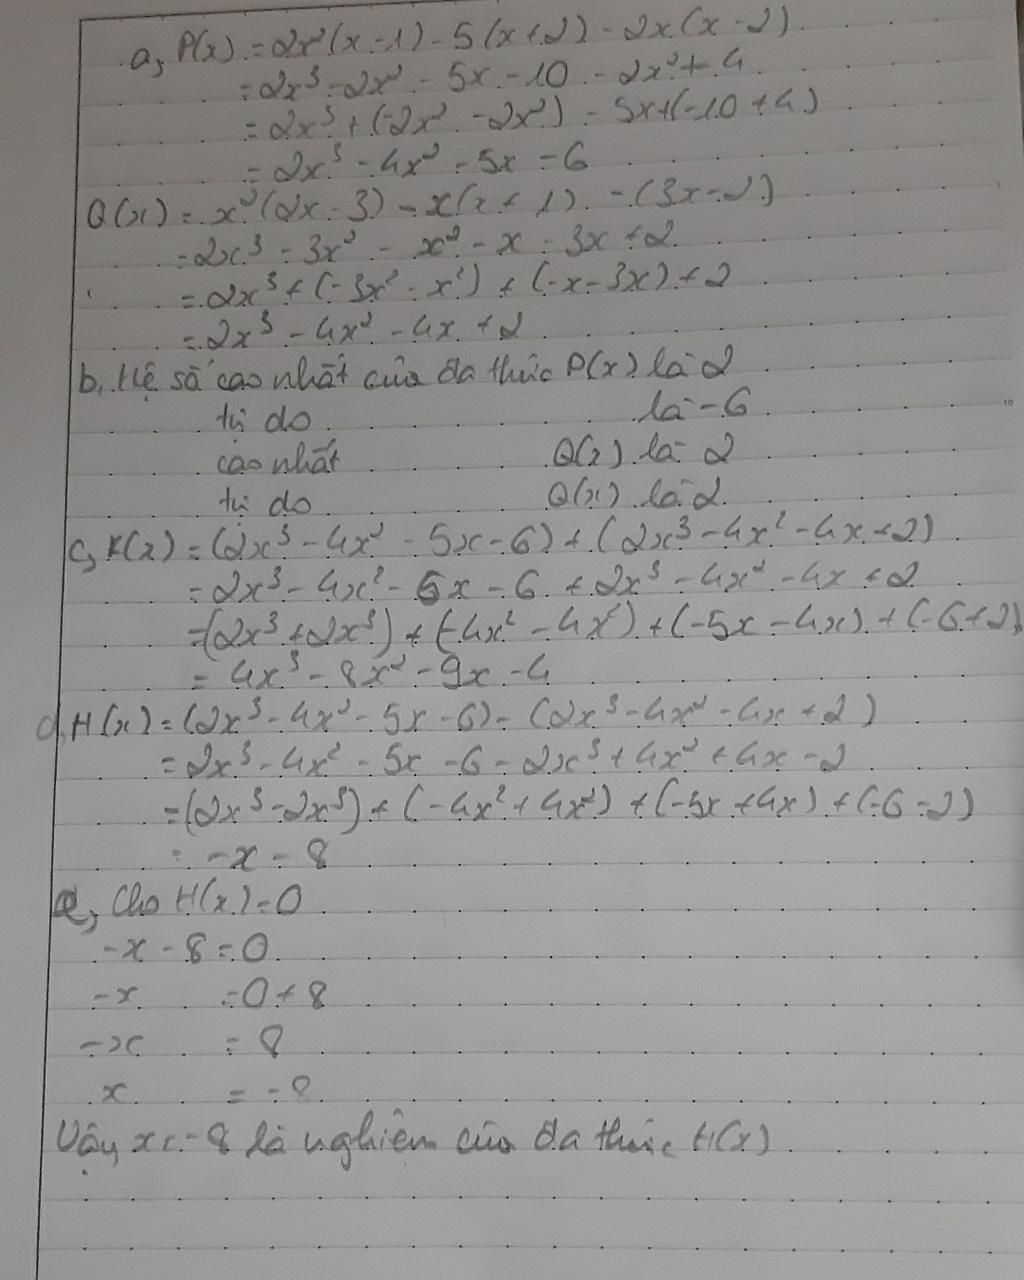 a, P(x) = 2x²(x-1) - 5(x+2) - 2x(x-2)
= 2x³ - 2x² - 5x - 10 - 2x² + 4
= 2x³ + (-2x² - 2x²) - 5x + (-10 + 4)
= 2x³ - 4x² - 5x - 6
Q(x) = x²(2x - 3) - x(x + 1) - (3x - 2)
= 2x³ - 3x² - x² - x - 3x + 2
= 2x³ + (-3x² - x²) + (-x - 3x) + 2
= 2x³ - 4x² - 4x + 2
b, Hệ số cao nhất của đa thức P(x) là 2
tự do là -6
cao nhất Q(x) là 2
tự do Q(x) là 2
c, K(x) = (2x³ - 4x² - 5x - 6) + (2x³ - 4x² - 4x + 2)
= 2x³ - 4x² - 5x - 6 + 2x³ - 4x² - 4x + 2
= (2x³ + 2x³) + (-4x² - 4x²) + (-5x - 4x) + (-6 + 2)
= 4x³ - 8x² - 9x - 4
d, H(x) = (2x³ - 4x² - 5x - 6) - (2x³ - 4x² - 4x + 2)
= 2x³ - 4x² - 5x - 6 - 2x³ + 4x² + 4x - 2
= (2x³ - 2x³) + (-4x² + 4x²) + (-5x + 4x) + (-6 - 2)
= -x - 8
e, Cho H(x) = 0
-x - 8 = 0
-x = 0 + 8
-x = 8
x = -8
Vậy x = -8 là nghiệm của đa thức H(x)